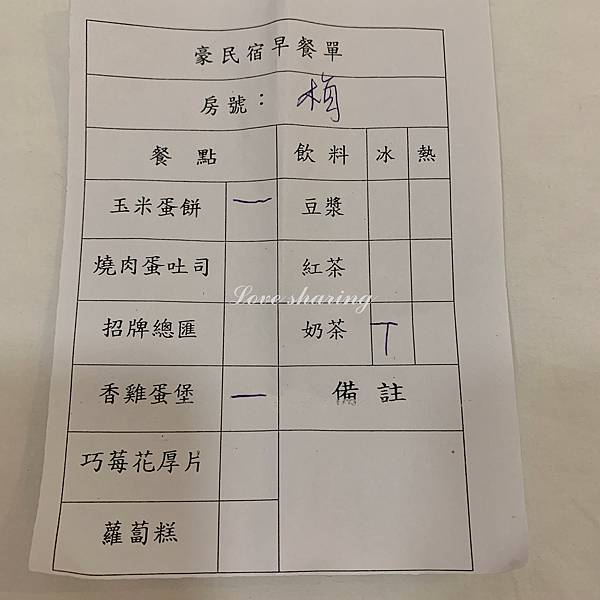 豪民宿早餐單
房號：梅
餐點 飲料 冰 熱
玉米蛋餅 一 豆漿
燒肉蛋吐司 紅茶
Love sharing
招牌總匯 奶茶 丅
香雞蛋堡 一 備註
巧莓花厚片
蘿蔔糕